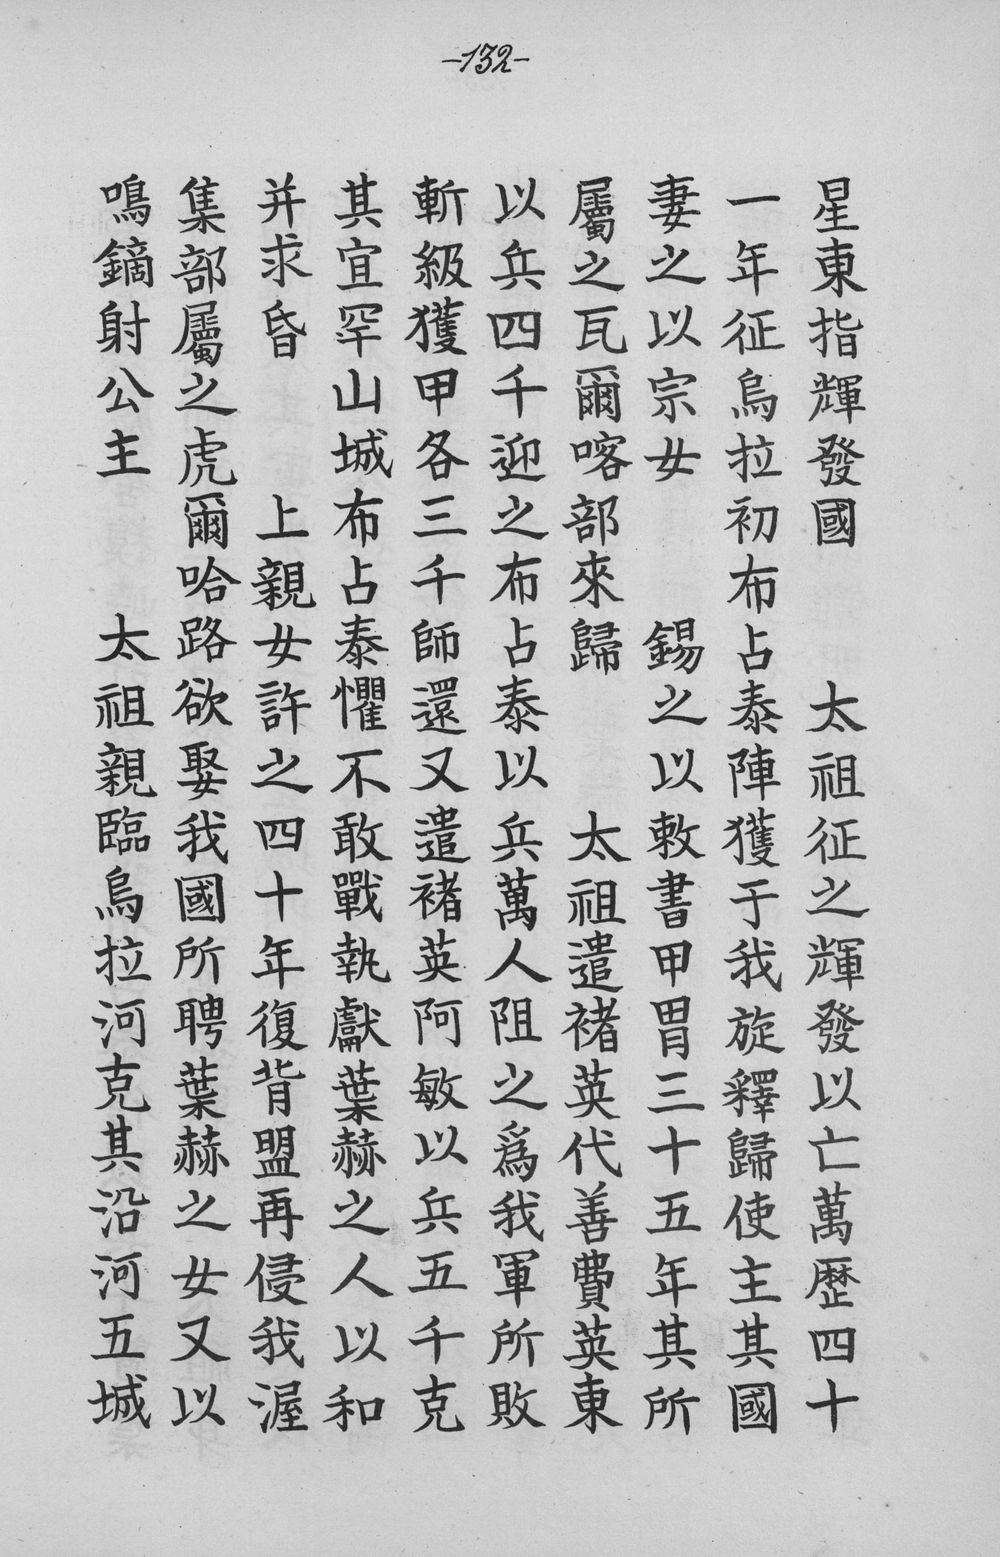 -132-
星東指輝發國　太祖征之輝發以亡萬歷四十
一年征烏拉初布占泰陣獲于我旋釋歸使主其國
妻之以宗女　錫之以敕書甲冑三十五年其所
屬之瓦爾喀部來歸　太祖遣褚英代善費英東
以兵四千迎之布占泰以兵萬人阻之爲我軍所敗
斬級獲甲各三千師還又遣褚英阿敏以兵五千克
其宜罕山城布占泰懼不敢戰執獻葉赫之人以和
并求昏　上親女許之四十年復背盟再侵我渥
集部屬之虎爾哈路欲娶我國所聘葉赫之女又以
鳴鏑射公主　太祖親臨烏拉河克其沿河五城